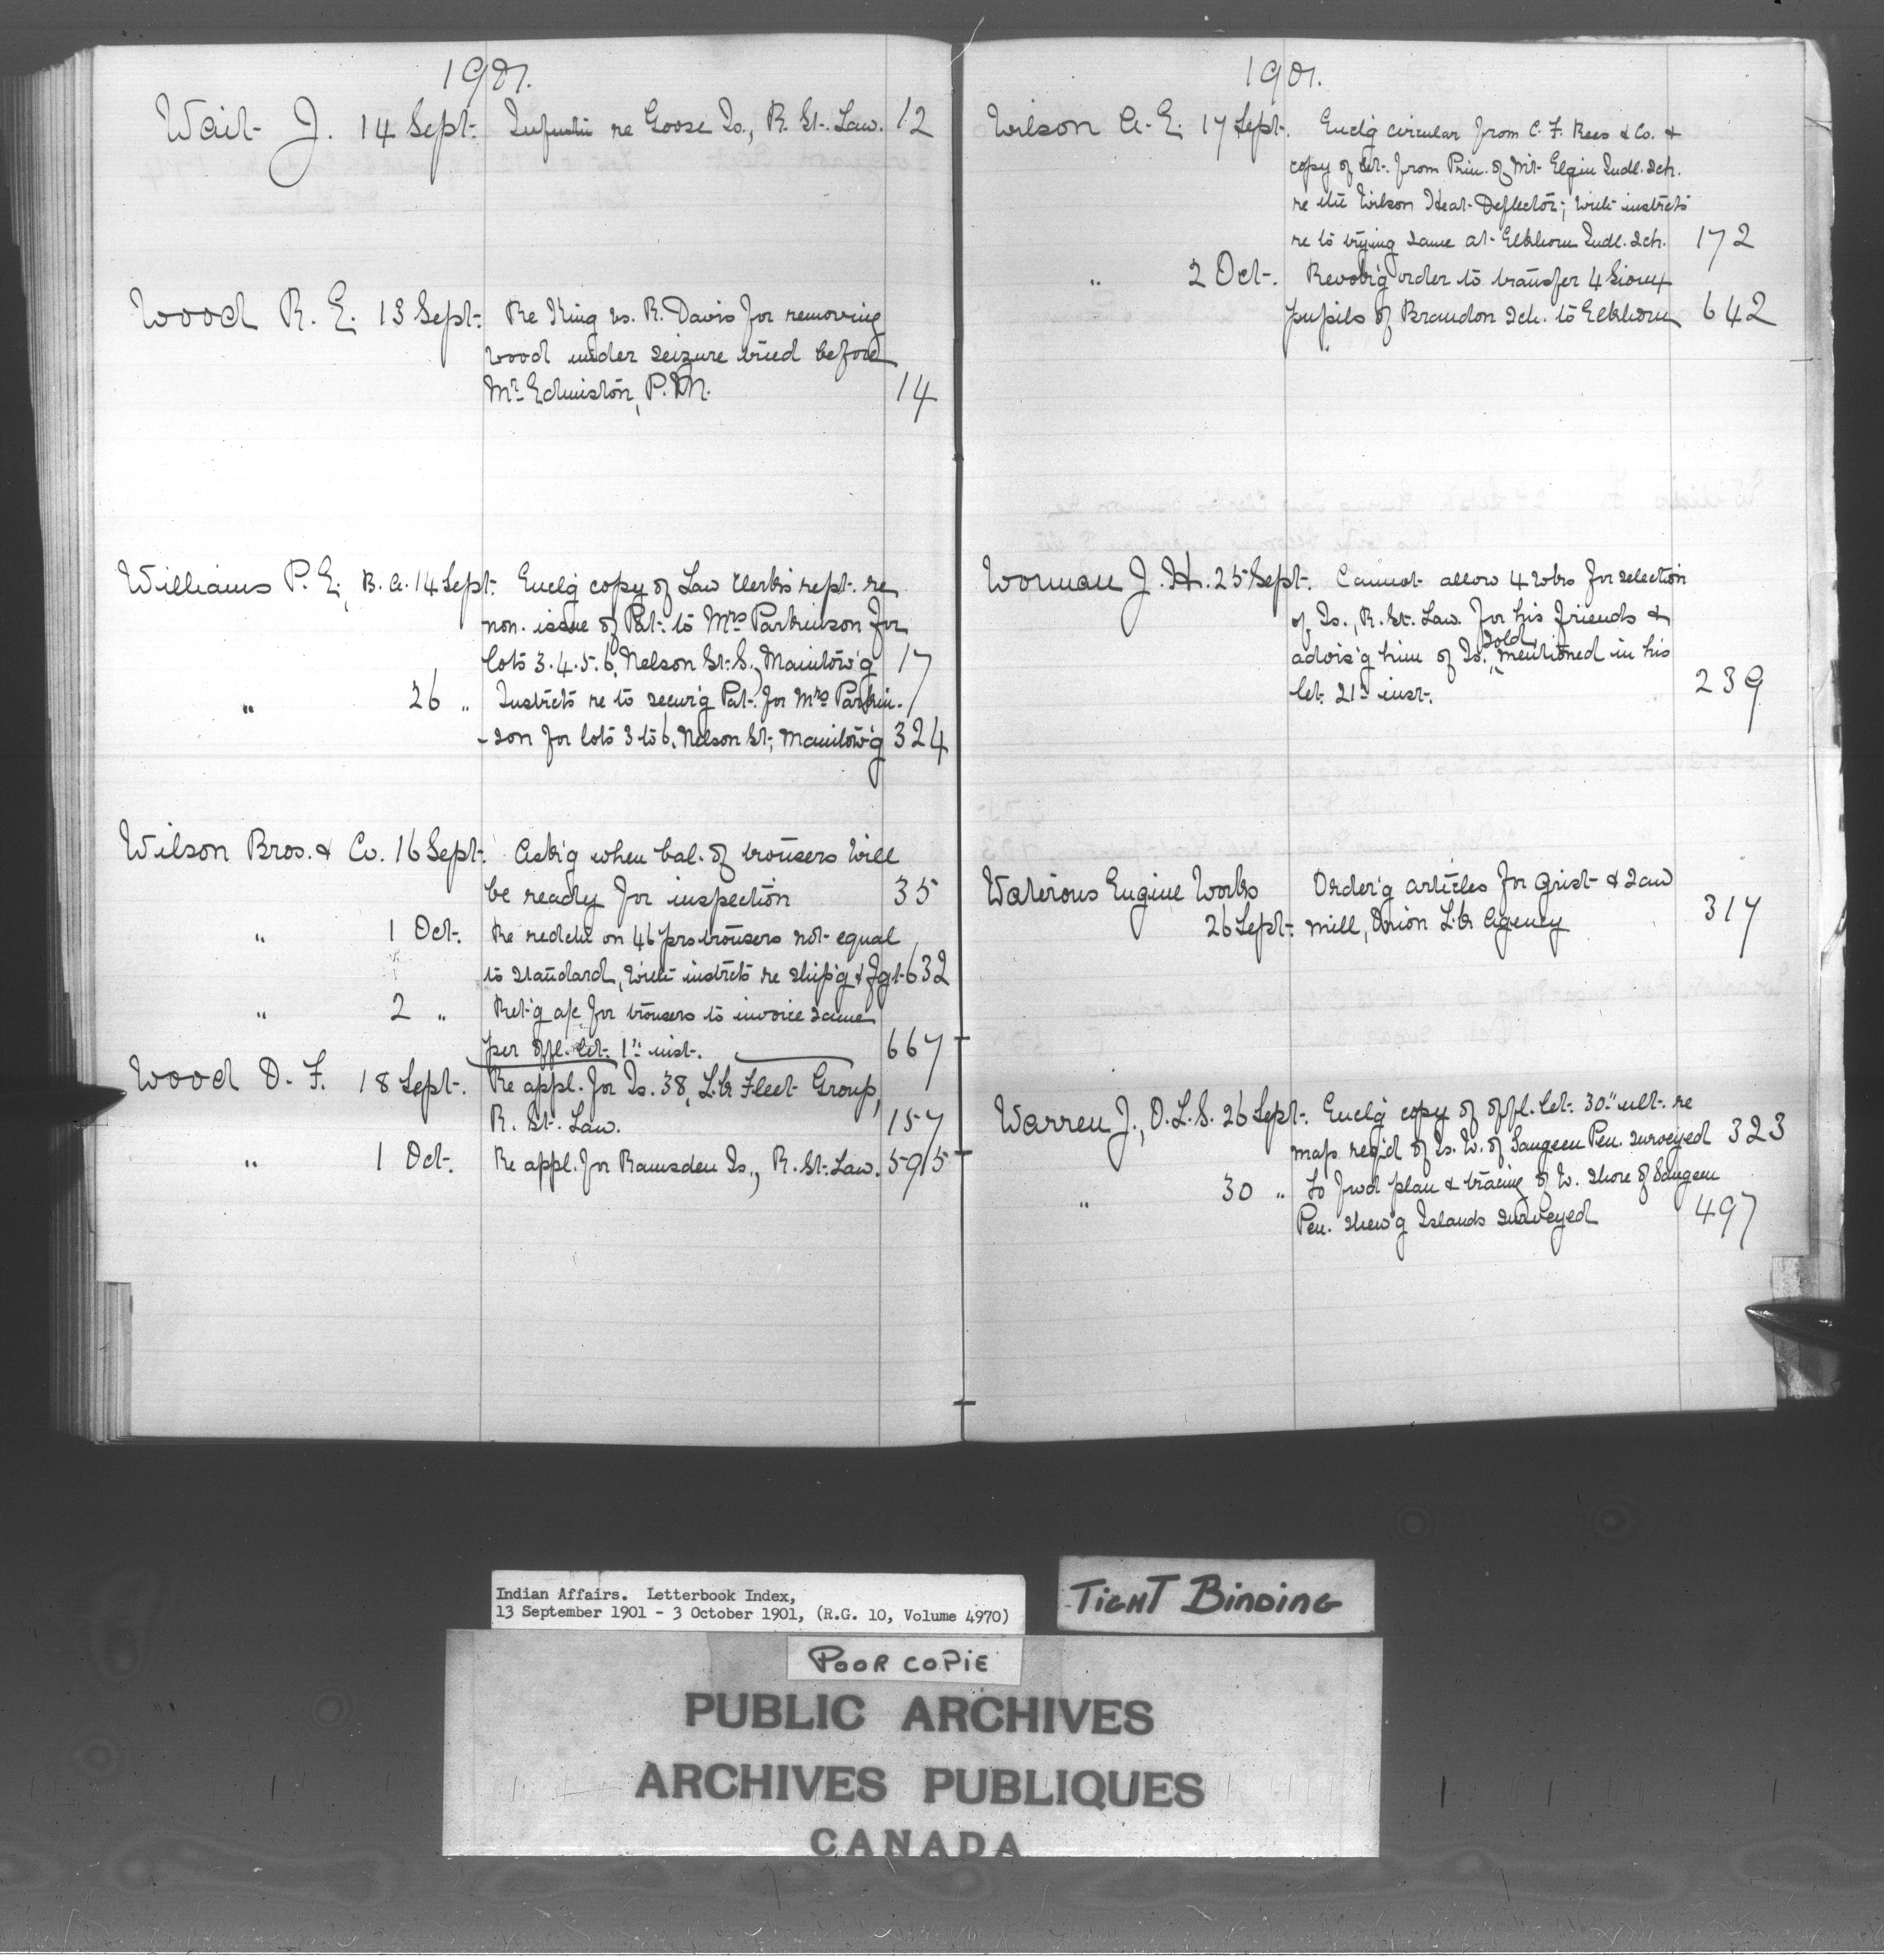 1901.
Wait J. 14 Sept. Informtn re Goose Is., R. St. Law. 12
Wood R. E. 13 Sept. Re King vs. R. Davis for removing
wood under seizure tried before
Mr. Edmiston, P.M. 14
Williams P. E., B.A. 14 Sept. Enclg copy of Law Clerk's rept. re
non. issue of Pat. to Mrs Parkinson for
lots 3.4.5.6, Nelson St. S., Manitow'g 17
" 26 " Instrcts re to secur'g Pat. for Mrs Parkin-
-son for lots 3 to 6, Nelson St., Manitow'g 324
Wilson Bros. & Co. 16 Sept. Ask'g when bal. of trousers will
be ready for inspection 35
" 1 Oct. Re redctn on 46 prs trousers not equal
to standard, with instrcts re ship'g & fgt. 632
" 2 " Ret'g a/c for trousers to invoice same
per offl. let. 1st inst. 667
Wood D. F. 18 Sept. Re appl. for Is. 38, L.k Fleet Group,
R. St. Law. 157
" 1 Oct. Re appl. for Ramsden Is., R. St. Law. 595
1901.
Wilson A. E. 17 Sept. Enclg circular from C. F. Rees & Co. &
copy of let. from Prin. of Mt. Elgin Indl. Sch.
re the Wilson Heat Deflector; with instrcts
re to trying same at Elkhorn Indl. Sch. 172
" 2 Oct. Revok'g order to transfer 4 Sioux
pupils of Brandon Sch. to Elkhorn 642
Worman J. H. 25 Sept. Cannot allow 4 wks for selection
of Is., R. St. Law. for his friends &
advis'g him of Is. sold, mentioned in his
let. 21st inst. 239
Waterous Engine Works Order'g articles for grist & saw
26 Sept. mill, Onion L.k Agency 317
Warren J., D.L.S. 26 Sept. Enclg copy of offl. let. 30th ult. re
map req'd of Is. W. of Saugeen Pen. surveyed 323
" 30 " To fwd plan & tracing of W. shore of Saugeen
Pen. shew'g Islands surveyed 497
Indian Affairs. Letterbook Index,
13 September 1901 - 3 October 1901, (R.G. 10, Volume 4970)
TIGHT BINDING
POOR COPIE
PUBLIC ARCHIVES
ARCHIVES PUBLIQUES
CANADA